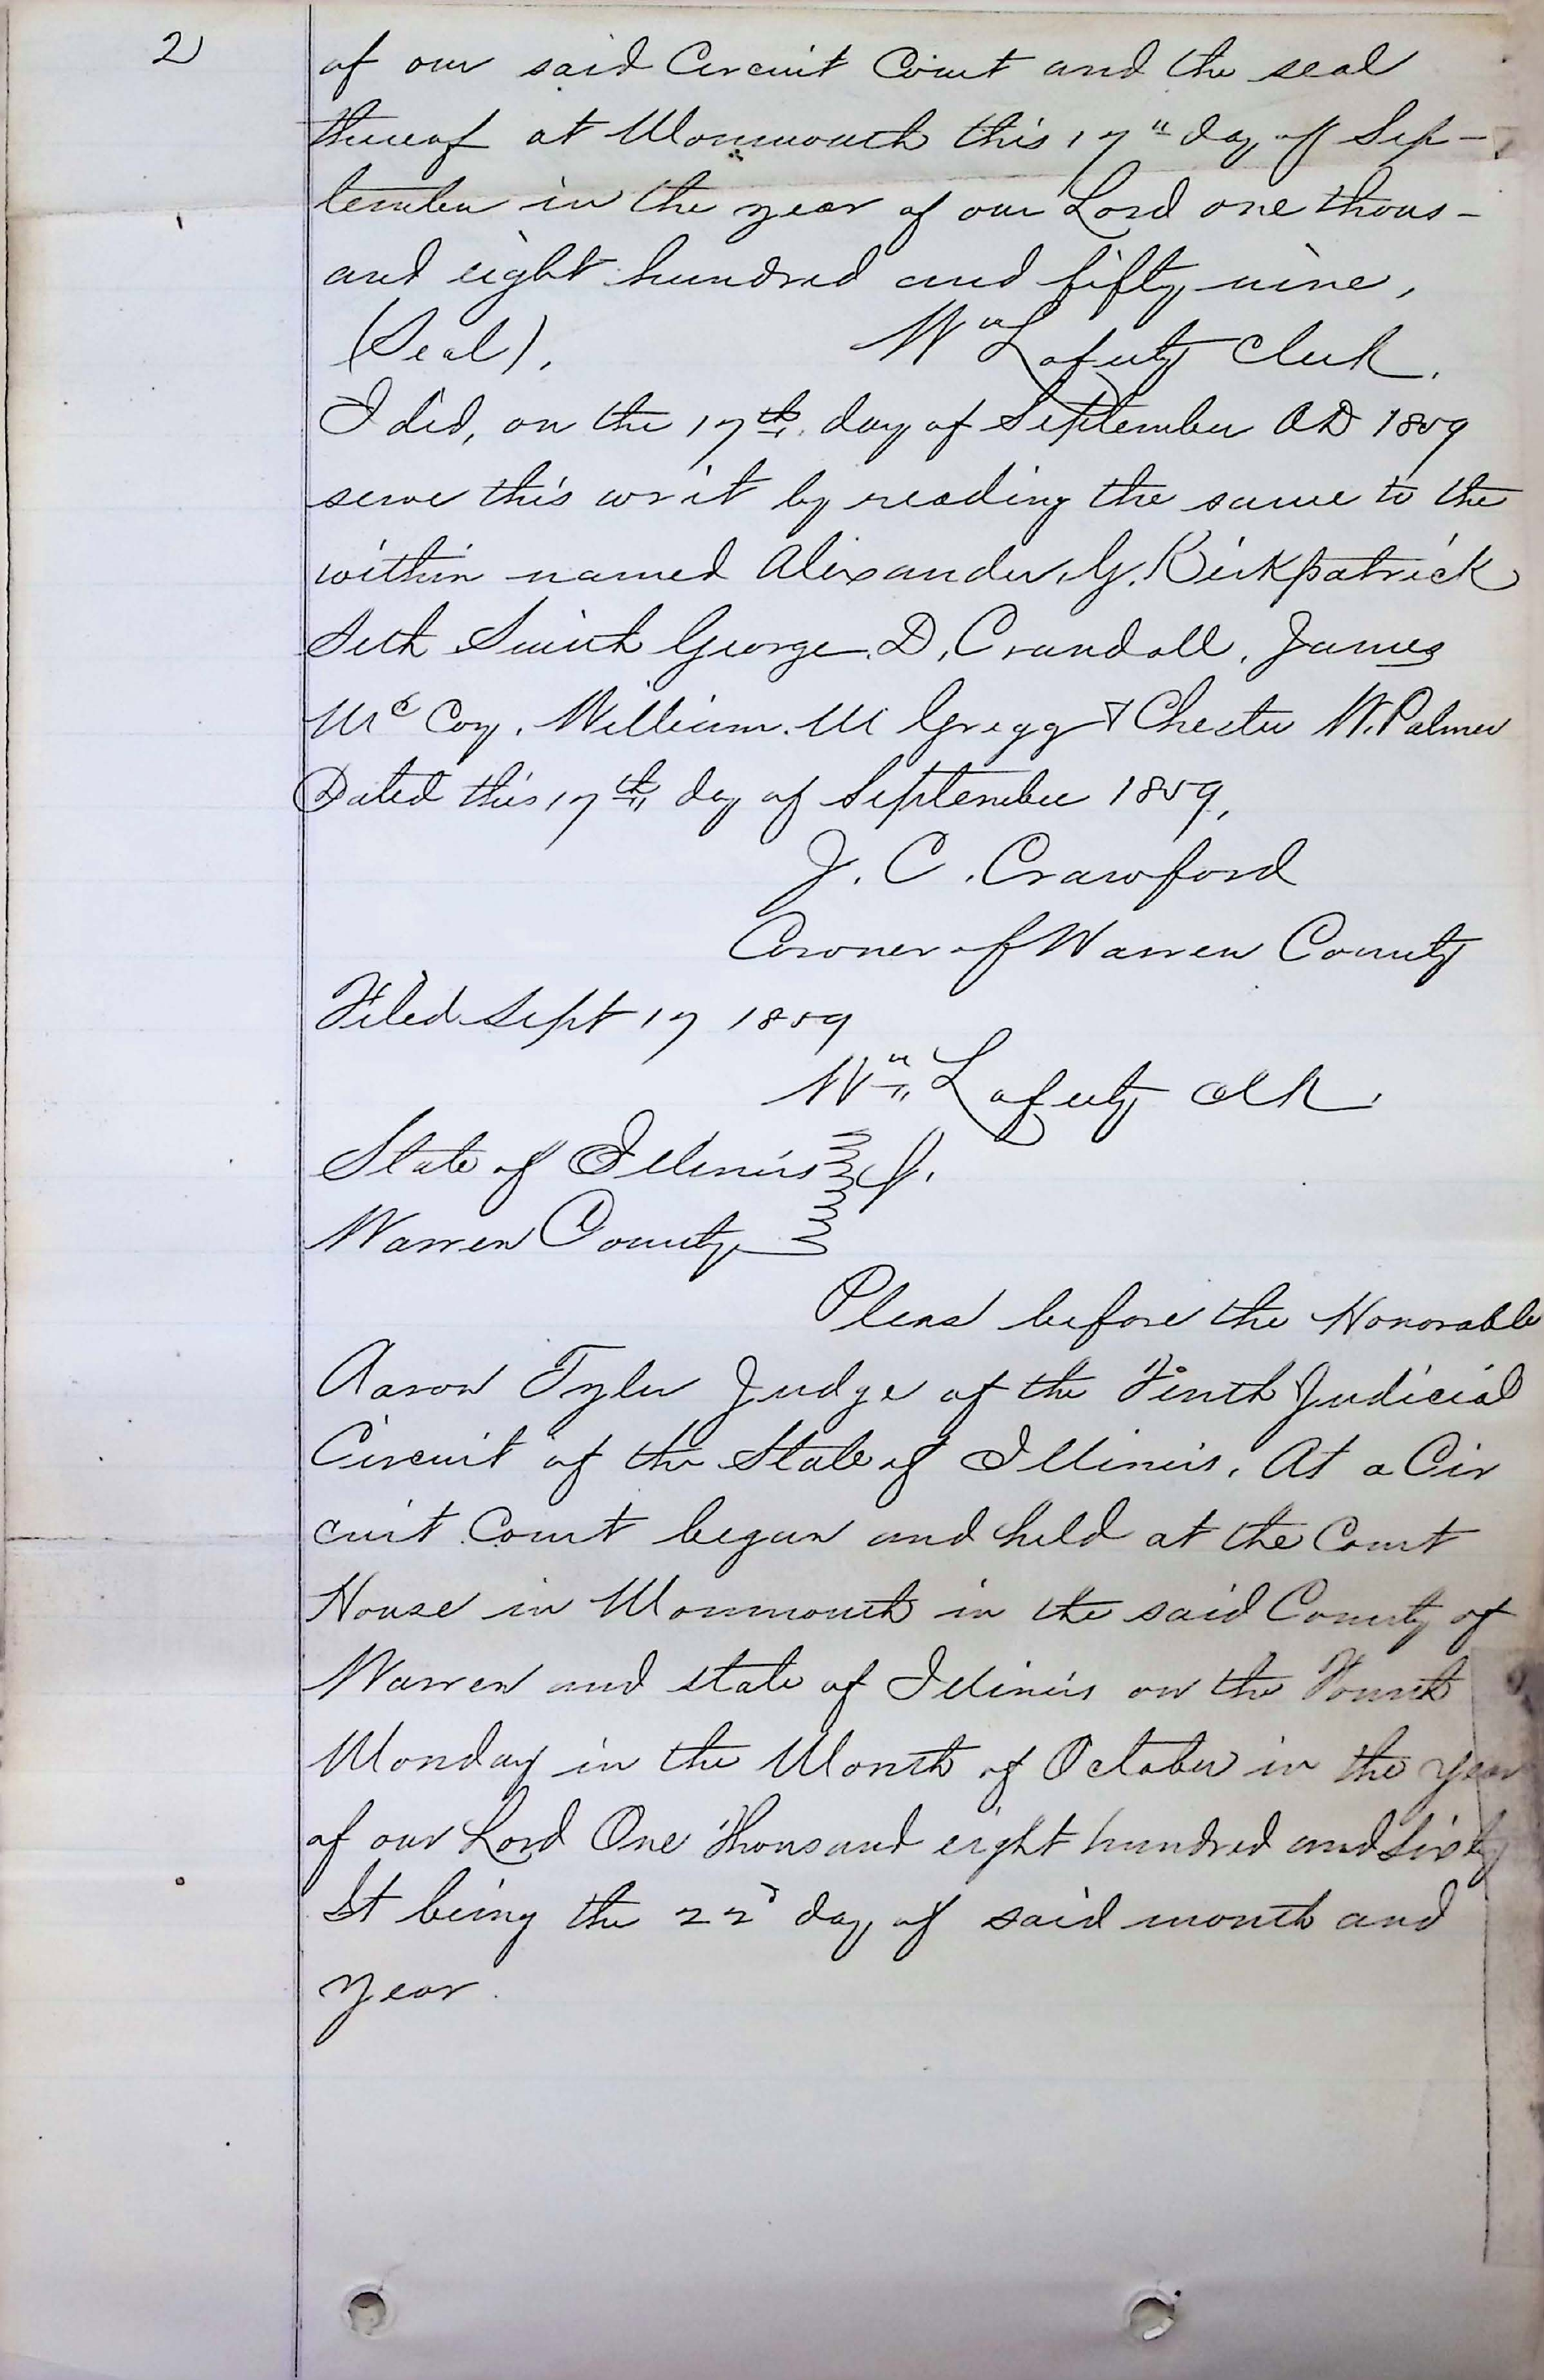 2
of our said Circuit Court and the seal
thereof at Monmouth this 17" day of Sep-
tember in the year of our Lord one thous-
and eight hundred and fifty nine,
(Seal). Wm Lafferty Clerk.
I did, on the 17th day of September AD 1859
serve this writ by reading the same to the
within named Alexander G. Kirkpatrick
Seth Smith George D. Crandall, James
Mc Coy, William. M Gregg & Chester W. Palmer
Dated this 17th day of September 1859,
J. C. Crawford
Coroner of Warren County
Filed Sept 17 1859
Wm Lafferty Clk.
State of Illinois } ss.
Warren County }
Pleas before the Honorable
Aaron Tyler Judge of the Tenth Judicial
Circuit of the State of Illinois. At a Cir
cuit Court begun and held at the Court
House in Monmouth in the said County of
Warren and state of Illinois on the Fourth
Monday in the Month of October in the year
of our Lord One thousand eight hundred and Sixty
It being the 22d day of said month and
year.